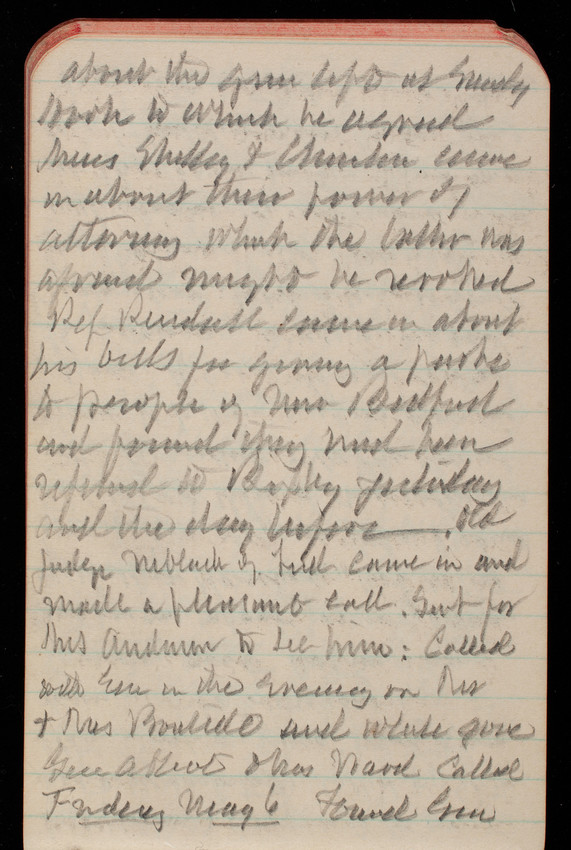 about the gun dept at Sandy
Hook to which he agreed
Miss Shelley & came
in about their power of
attorney which the latter was
afraid might be revoked
Rep. Randall came in about
his bills for giving a park
to people of New Bedford
and found they had been
referred to Bixby yesterday
and the day before Old
Judge Niblack of Ind came in and
made a pleasant call. Sent for
Mrs Anderson to see him: Called
with Em in the evening on Mr
& Mrs Boutelle and while gone
Gen Abbot & Mrs Ward Called
Friday May 6 Found Gen